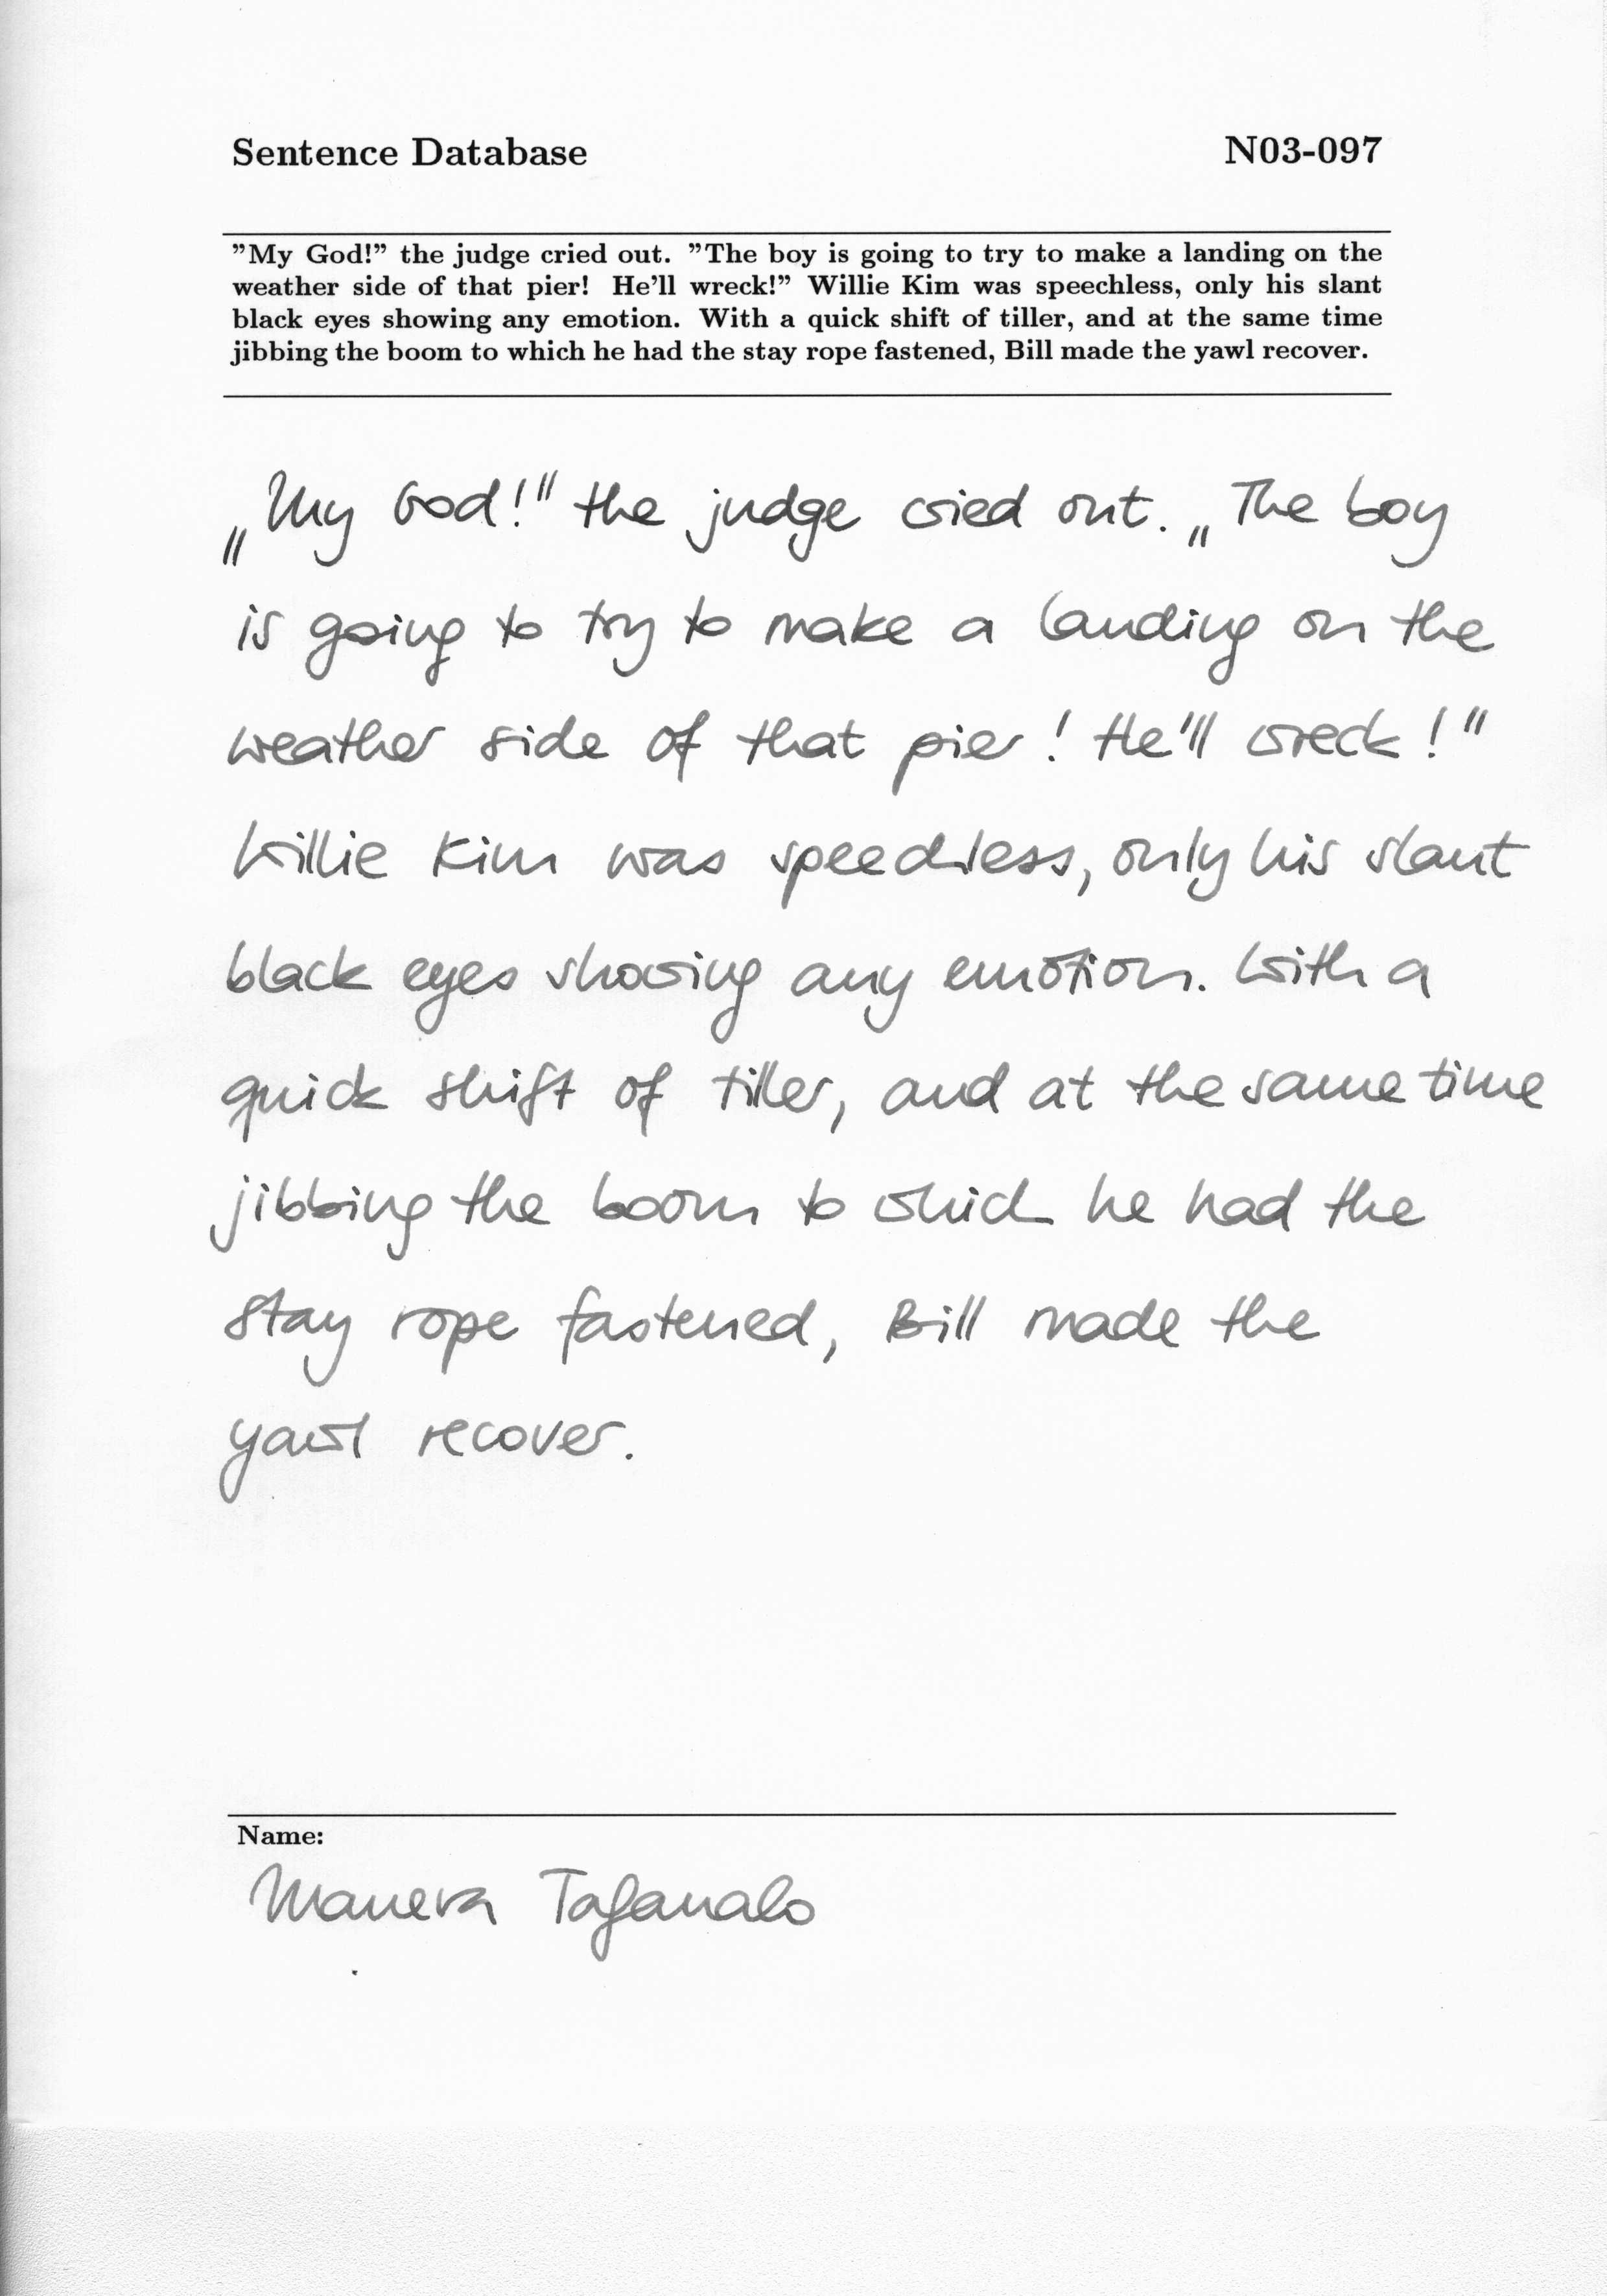 Sentence Database N03-097
"My God!" the judge cried out. "The boy is going to try to make a landing on the
weather side of that pier! He'll wreck!" Willie Kim was speechless, only his slant
black eyes showing any emotion. With a quick shift of tiller, and at the same time
jibbing the boom to which he had the stay rope fastened, Bill made the yawl recover.
„My God!" the judge cried out. „The boy
is going to try to make a landing on the
weather side of that pier! He'll wreck!"
Willie Kim was speechless, only his slant
black eyes showing any emotion. With a
quick shift of tiller, and at the same time
jibbing the boom to which he had the
stay rope fastened, Bill made the
yawl recover.
Name: